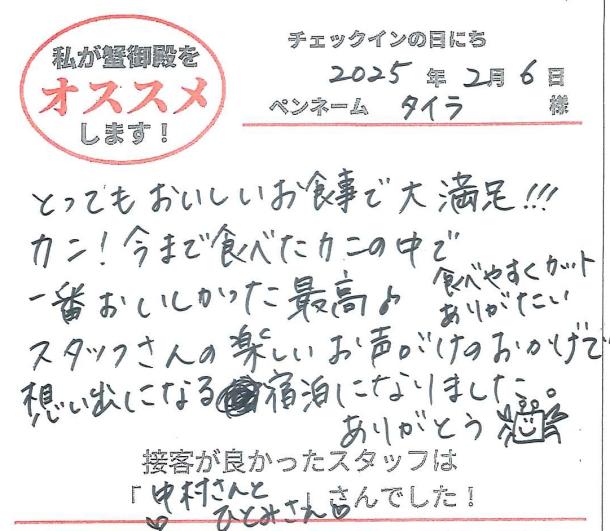 私が蟹御殿を
オススメ
します！
チェックインの日にち
2025年2月6日
ペンネーム タイラ 様
とってもおいしいお食事で大満足!!!
カニ！今まで食べたカニの中で
一番おいしかった最高♪
食べやすくカット
ありがたい
スタッフさんの楽しいお声がけのおかげで
想い出になる宿泊になりました
ありがとう
接客が良かったスタッフは
「中村さんと
ひとみさん」さんでした！